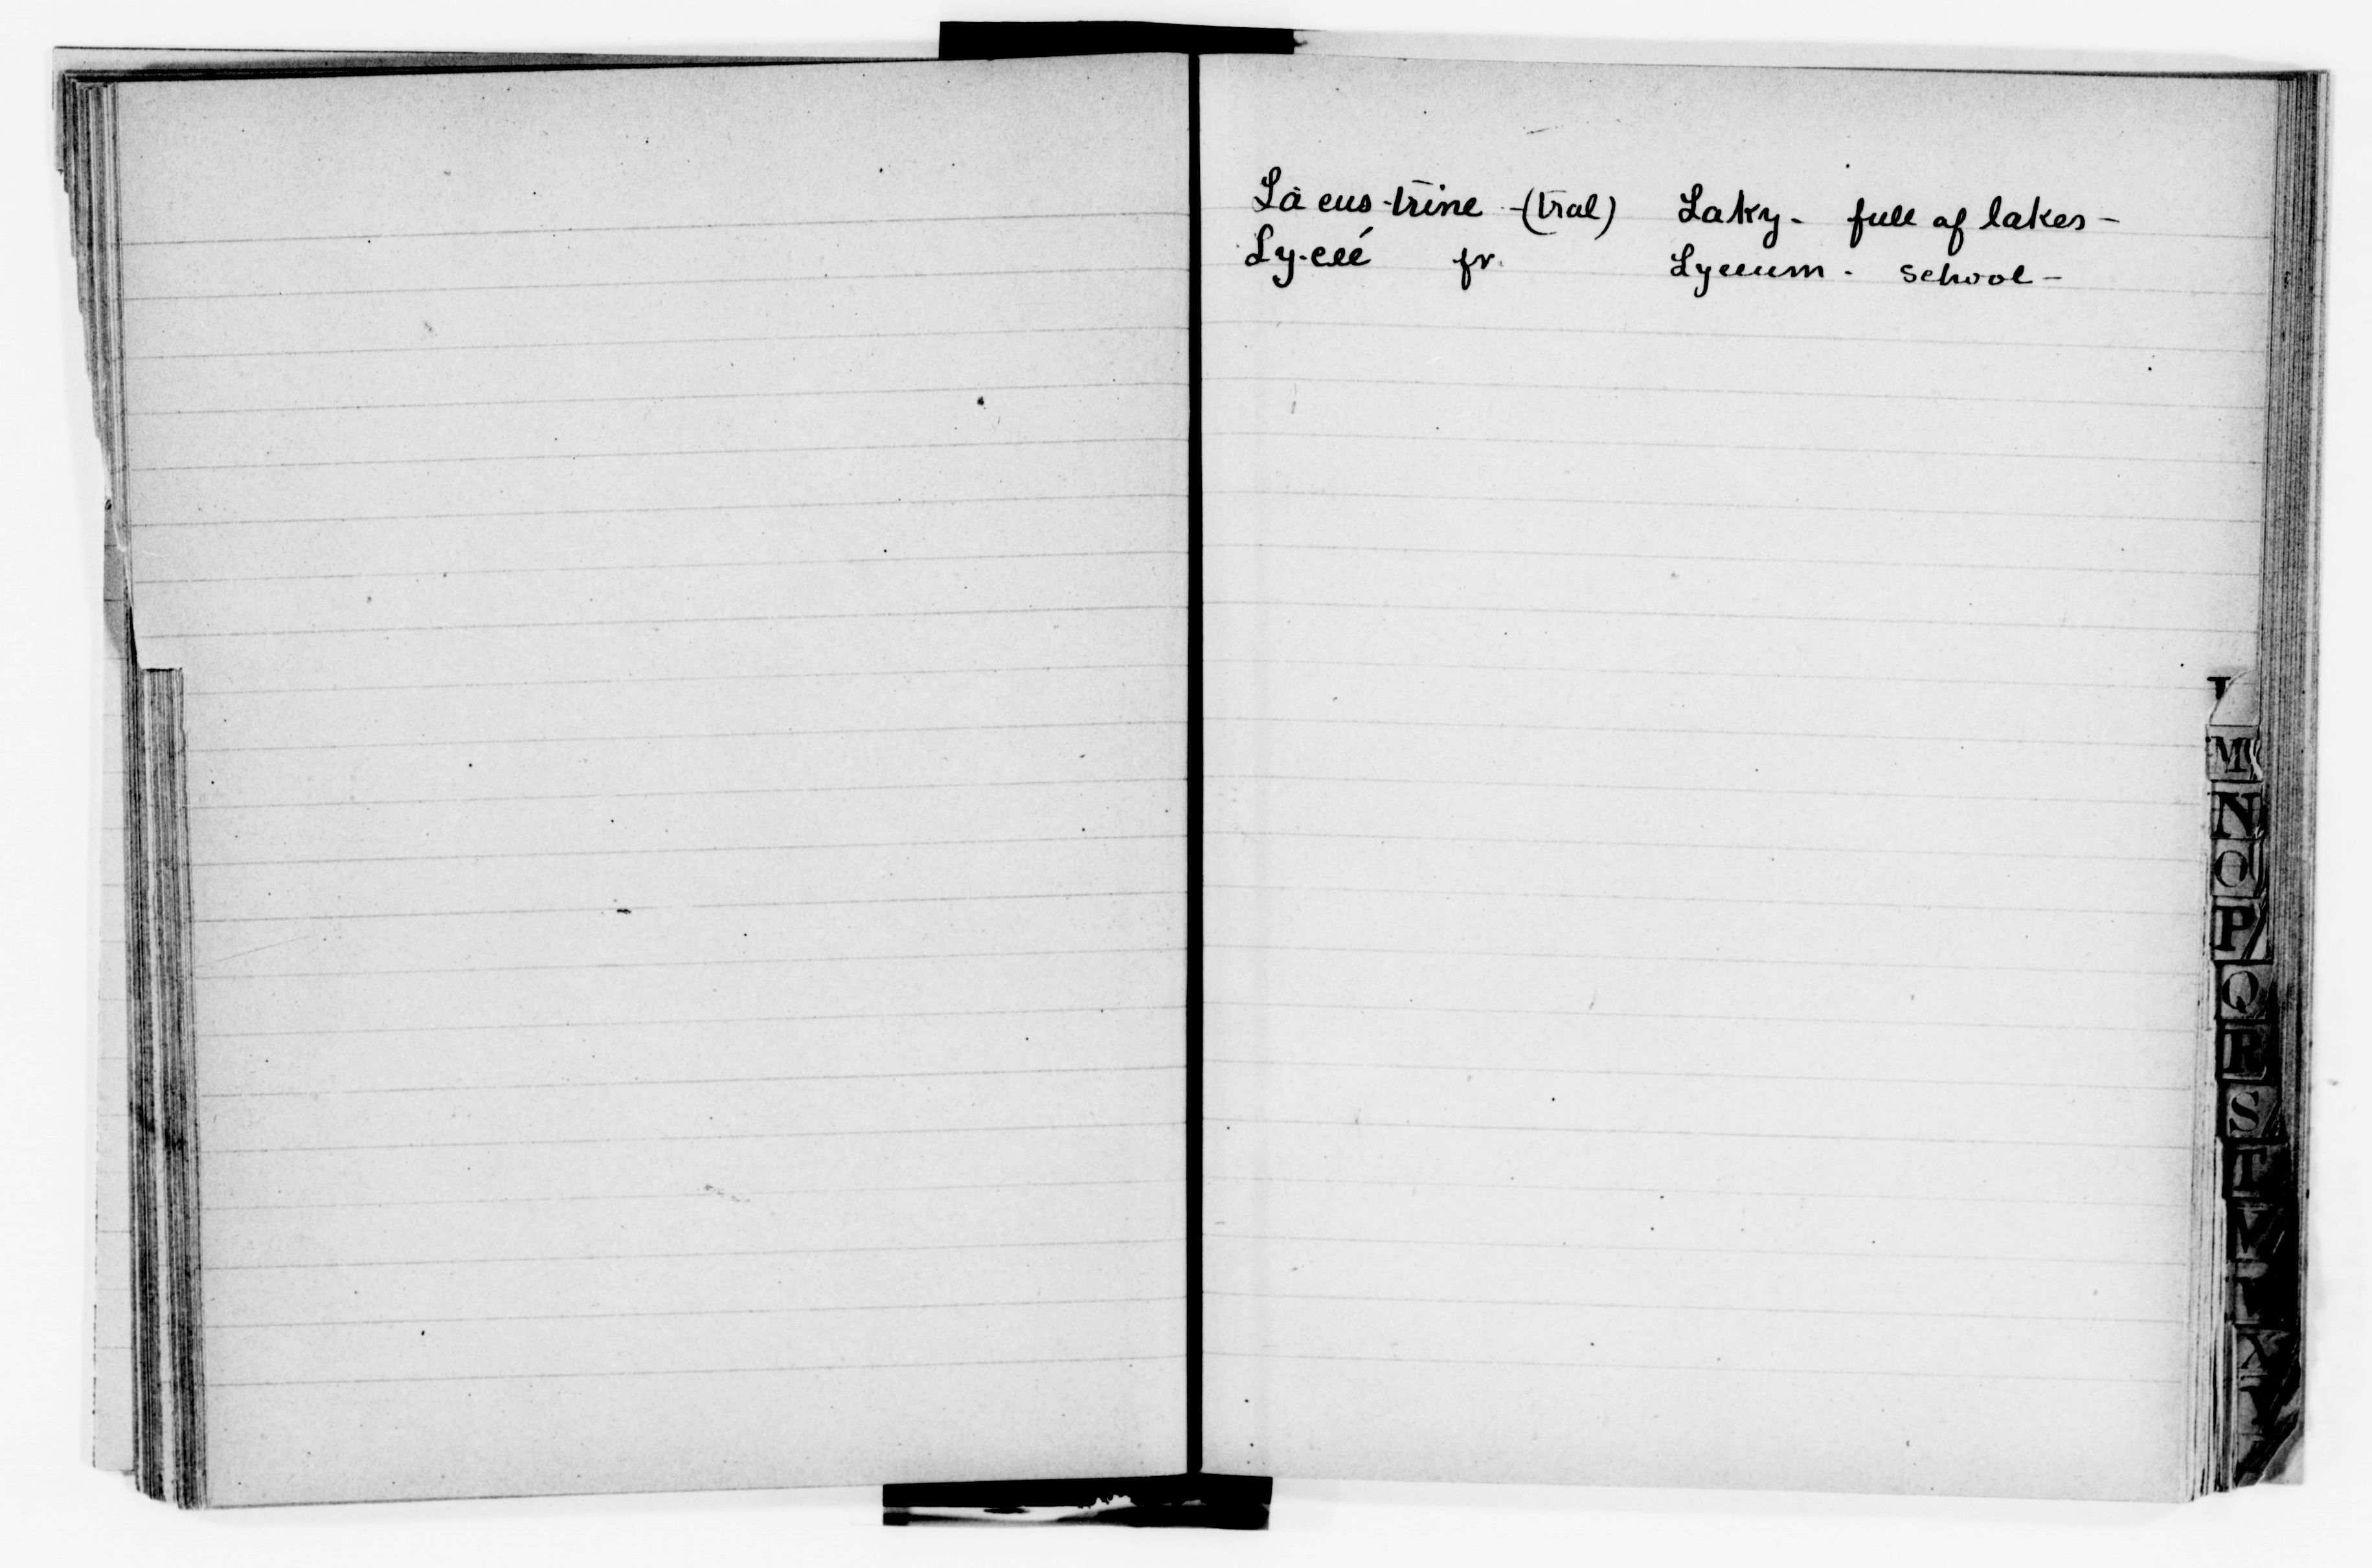 Là cus-trine -(tral) Laky - full of lakes -
Ly-ceé fr. Lyceum - school -
M
N
O
P
Q
R
S
T